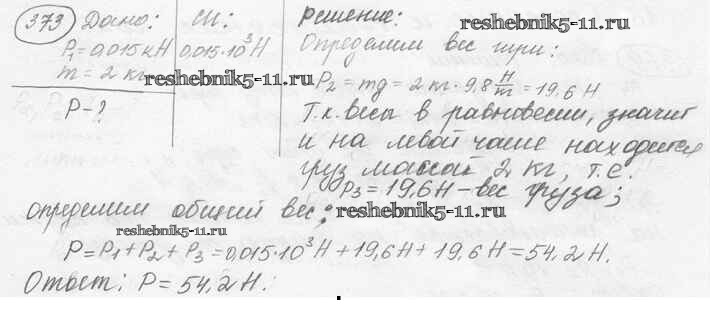 373 Дано: СИ: Решение: reshebnik5-11.ru
P₁=0,015кН 0,015·10³Н Определим вес гири:
m = 2 кг reshebnik5-11.ru
P₂ = mg = 2 кг · 9,8 Н/м = 19,6 Н
P-?
Т.к. весы в равновесии, значит
и на левой чаше находится
груз массой 2 кг, т.е.
P₃ = 19,6Н - вес груза;
Определим общий вес: reshebnik5-11.ru
reshebnik5-11.ru
P = P₁ + P₂ + P₃ = 0,015·10³Н + 19,6Н + 19,6Н = 54,2Н.
Ответ: P = 54,2Н.